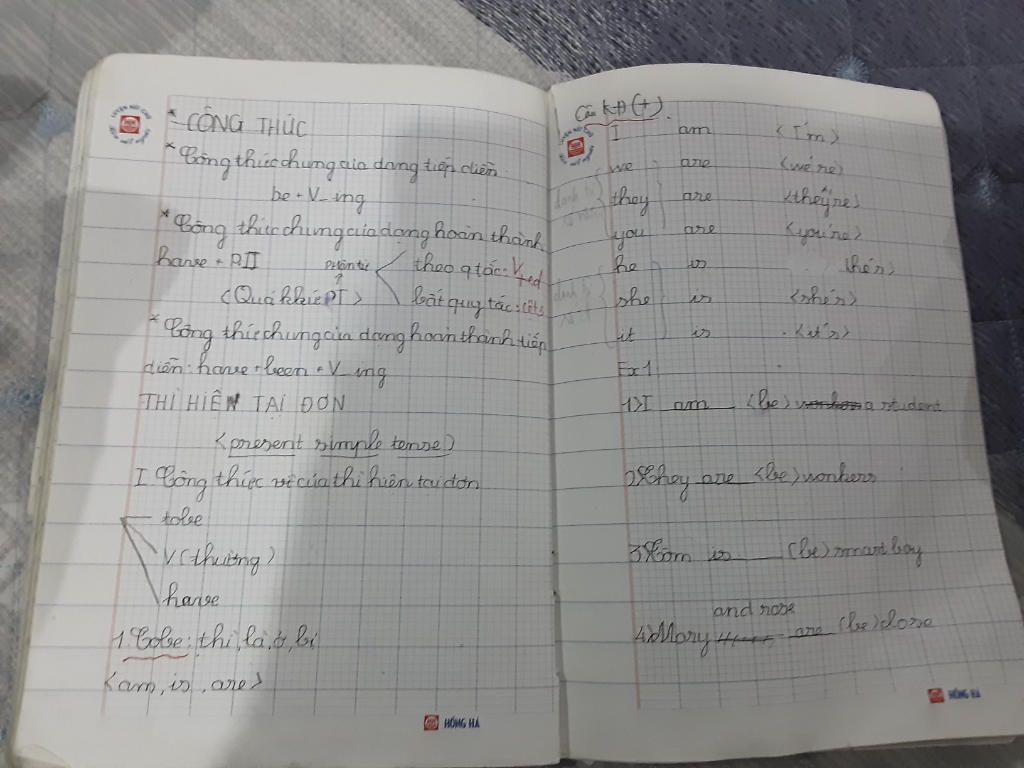 * CÔNG THỨC
* Công thức chung của dạng tiếp diễn:
be + V_ing
* Công thức chung của dạng hoàn thành
have + PII
phân từ
theo q tắc: V_ed
(Quá khứ PI)
bất quy tắc:
* Công thức chung của dạng hoàn thành tiếp
diễn: have + been + V_ing
THÌ HIỆN TẠI ĐƠN
(present simple tense)
I Công thức về của thì hiện tại đơn
tobe
V (thường)
have
1. Tobe: thì, là, ở, bị
<am, is, are>
HỒNG HÀ
Câu KĐ (+).
I am <I'm>
we are <we're>
they are <they're>
you are <you're>
he is he's>
she is <she's>
it is <it's>
Ex1
1) I am (be) a student
2) They are (be) workers
3) Tom is (be) smart boy
and rose
4) Mary are (be) 
HỒNG HÀ